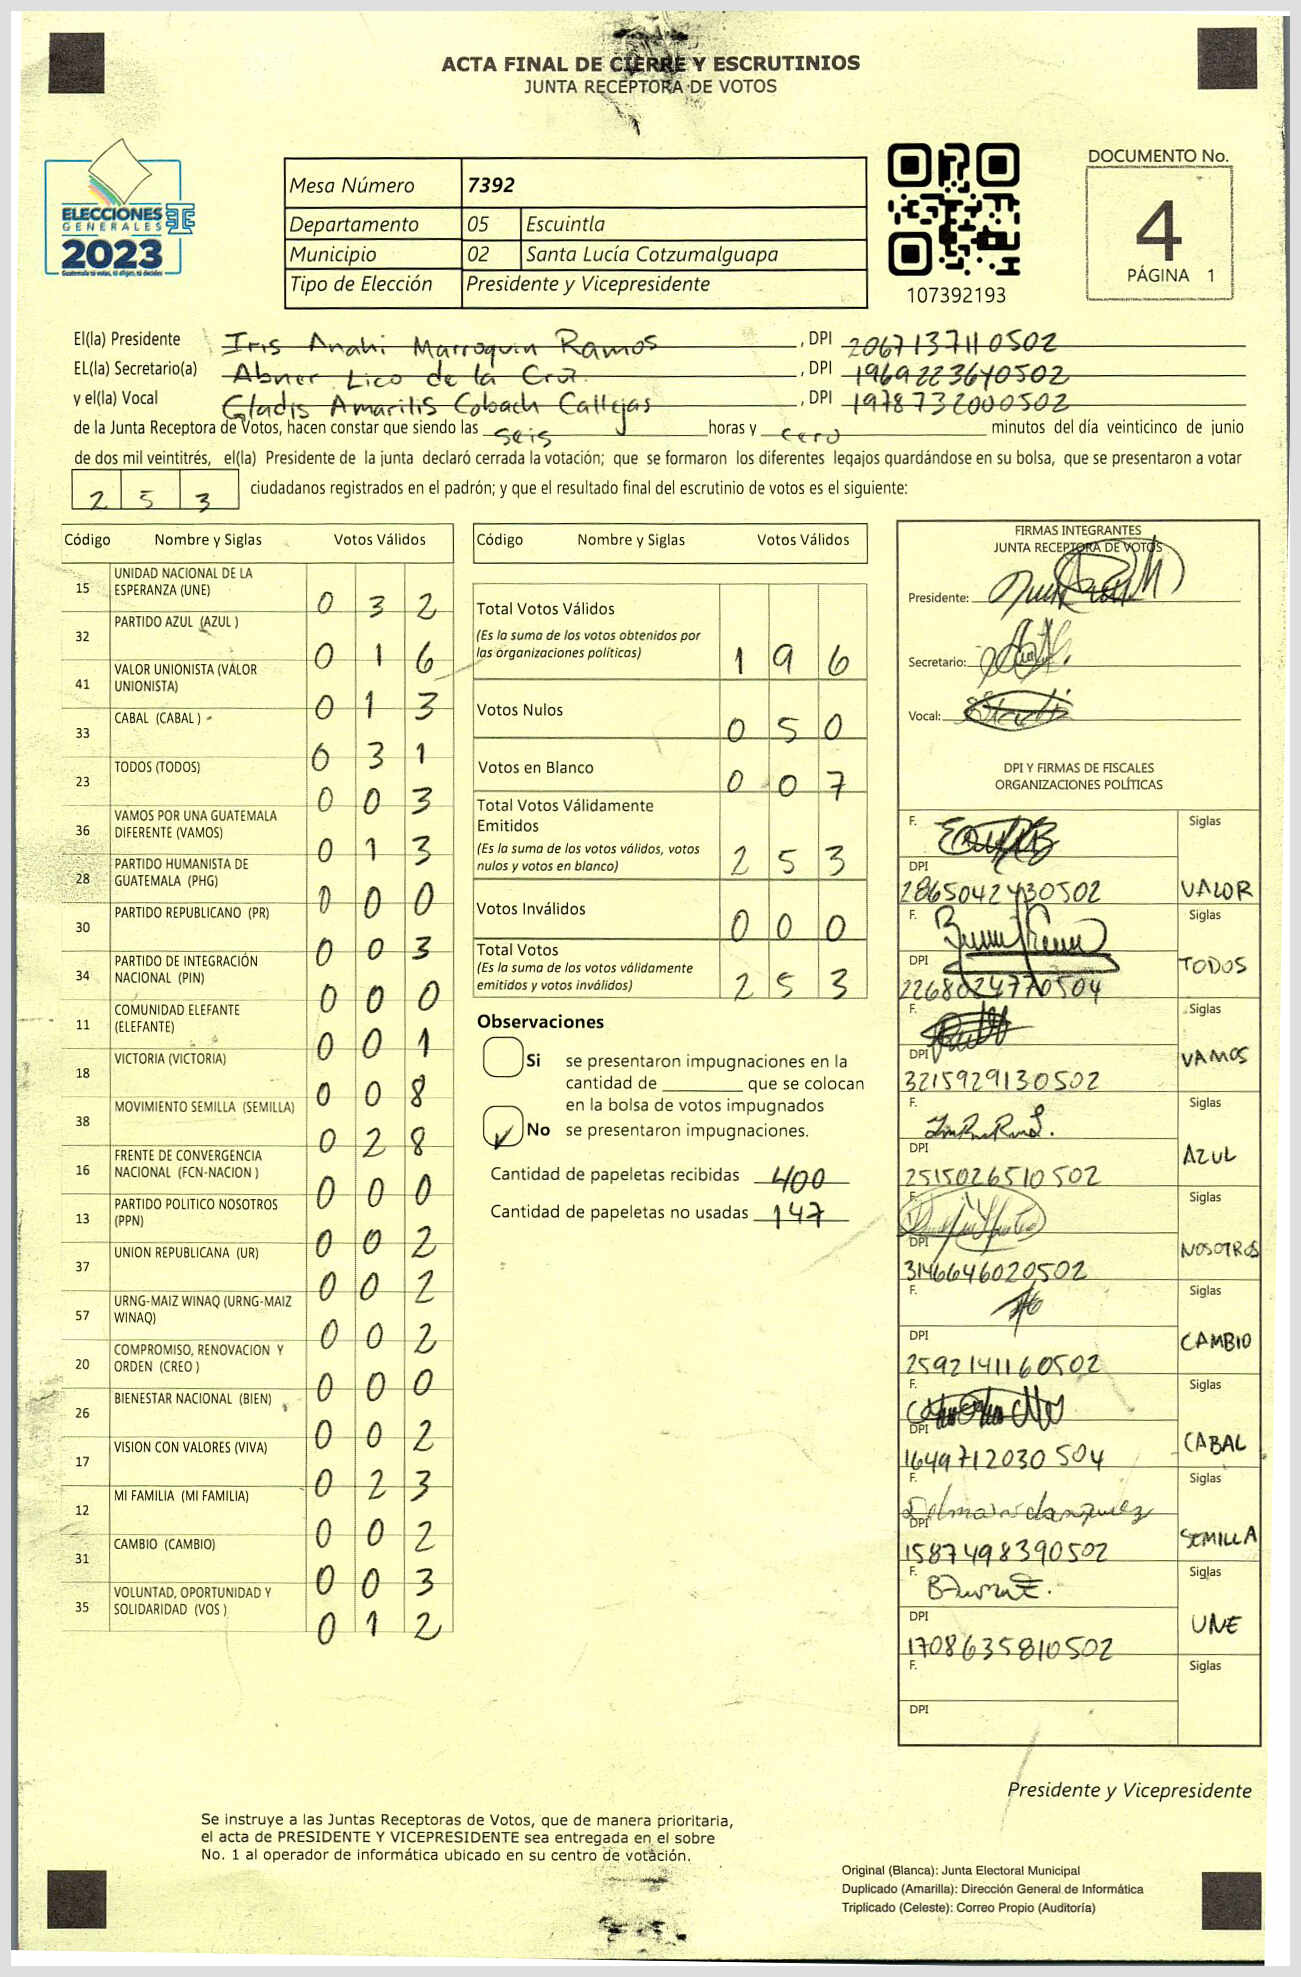 ACTA FINAL DE CIERRE Y ESCRUTINIOS
JUNTA RECEPTORA DE VOTOS
ELECCIONES
GENERALES
2023
Guatemala tú votas, tú eliges, tú decides
Mesa Número 7392
Departamento 05 Escuintla
Municipio 02 Santa Lucía Cotzumalguapa
Tipo de Elección Presidente y Vicepresidente
107392193
DOCUMENTO No.
4
PÁGINA 1
El(la) Presidente Iris Anahi Marroquin Ramos, DPI 2067137110502
EL(la) Secretario(a) Abner Lico de la Cruz, DPI 1969223640502
y el(la) Vocal Gladis Amarilis Cobach Callejas, DPI 1978732000502
de la Junta Receptora de Votos, hacen constar que siendo las seis horas y cero minutos del día veinticinco de junio
de dos mil veintitrés, el(la) Presidente de la junta declaró cerrada la votación; que se formaron los diferentes legajos guardándose en su bolsa, que se presentaron a votar
253 ciudadanos registrados en el padrón; y que el resultado final del escrutinio de votos es el siguiente:
Código Nombre y Siglas Votos Válidos
15 UNIDAD NACIONAL DE LA ESPERANZA (UNE) 032
32 PARTIDO AZUL (AZUL ) 016
41 VALOR UNIONISTA (VALOR UNIONISTA) 013
33 CABAL (CABAL ) 031
23 TODOS (TODOS) 003
36 VAMOS POR UNA GUATEMALA DIFERENTE (VAMOS) 013
28 PARTIDO HUMANISTA DE GUATEMALA (PHG) 000
30 PARTIDO REPUBLICANO (PR) 003
34 PARTIDO DE INTEGRACIÓN NACIONAL (PIN) 000
11 COMUNIDAD ELEFANTE (ELEFANTE) 001
18 VICTORIA (VICTORIA) 008
38 MOVIMIENTO SEMILLA (SEMILLA) 028
16 FRENTE DE CONVERGENCIA NACIONAL (FCN-NACION ) 000
13 PARTIDO POLITICO NOSOTROS (PPN) 002
37 UNION REPUBLICANA (UR) 002
57 URNG-MAIZ WINAQ (URNG-MAIZ WINAQ) 002
20 COMPROMISO, RENOVACION Y ORDEN (CREO ) 000
26 BIENESTAR NACIONAL (BIEN) 002
17 VISION CON VALORES (VIVA) 023
12 MI FAMILIA (MI FAMILIA) 002
31 CAMBIO (CAMBIO) 003
35 VOLUNTAD, OPORTUNIDAD Y SOLIDARIDAD (VOS ) 012
Código Nombre y Siglas Votos Válidos
Total Votos Válidos 196
(Es la suma de los votos obtenidos por
las organizaciones políticas)
Votos Nulos 050
Votos en Blanco 007
Total Votos Válidamente
Emitidos
(Es la suma de los votos válidos, votos
nulos y votos en blanco) 253
Votos Inválidos 000
Total Votos
(Es la suma de los votos válidamente
emitidos y votos inválidos) 253
Observaciones
Si se presentaron impugnaciones en la
cantidad de ________ que se colocan
en la bolsa de votos impugnados
No se presentaron impugnaciones.
Cantidad de papeletas recibidas 400
Cantidad de papeletas no usadas 147
FIRMAS INTEGRANTES
JUNTA RECEPTORA DE VOTOS
Presidente:
Secretario:
Vocal:
DPI Y FIRMAS DE FISCALES
ORGANIZACIONES POLÍTICAS
F. Siglas
DPI
2865042430502 VALOR
F. Siglas
DPI
2268024770504 TODOS
F. Siglas
DPI
3215929130502 VAMOS
F. Siglas
DPI
2515026510502 AZUL
F. Siglas
DPI
3146646020502 NOSOTROS
F. Siglas
DPI
2592141160502 CAMBIO
F. Siglas
DPI
1649712030504 CABAL
F. Siglas
DPI
1587498390502 SEMILLA
F. Siglas
DPI
1708635810502 UNE
F. Siglas
DPI
Presidente y Vicepresidente
Se instruye a las Juntas Receptoras de Votos, que de manera prioritaria,
el acta de PRESIDENTE Y VICEPRESIDENTE sea entregada en el sobre
No. 1 al operador de informática ubicado en su centro de votación.
Original (Blanca): Junta Electoral Municipal
Duplicado (Amarilla): Dirección General de Informática
Triplicado (Celeste): Correo Propio (Auditoría)